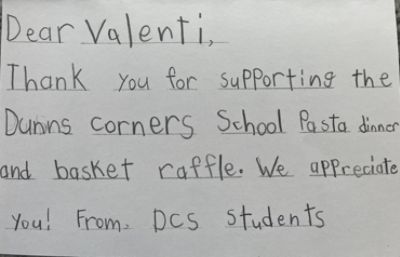 Dear Valenti,
Thank you for supporting the
Dunns corners School Pasta dinner
and basket raffle. We appreciate
you! From. DCS students